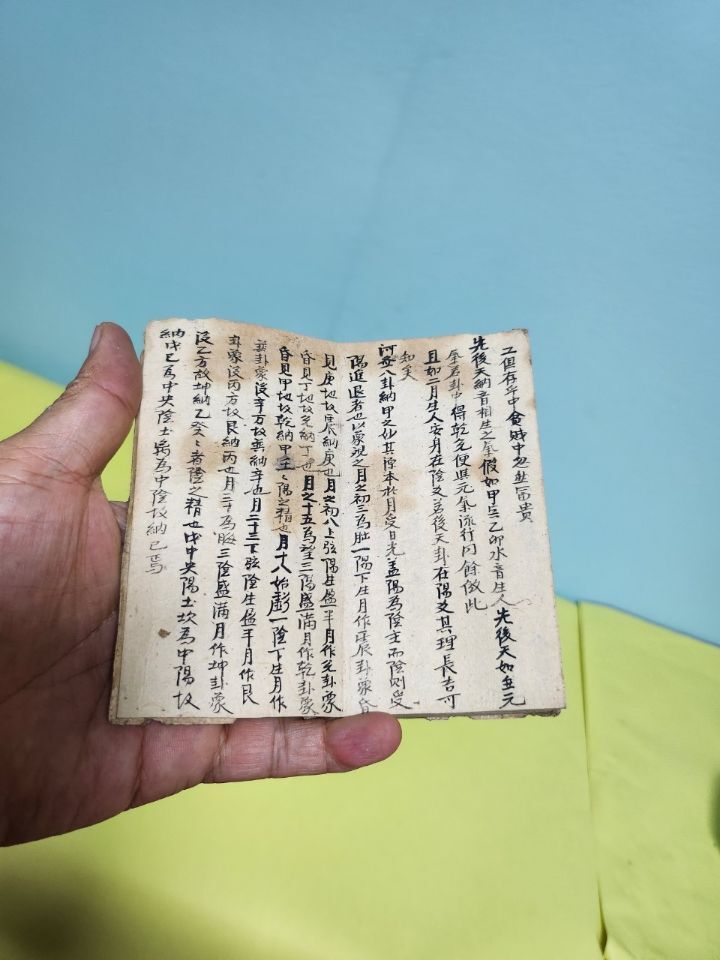 工但存乎中貧賤中忽然富貴
先後天納音相生之氣假如甲寅乙卯水音生人先後天如無元
氣若卦中得乾兌便與元氣流行同餘倣此
且如二月生人安身在陰爻若後天卦在陽爻其理長吉可
知矣
河圖八卦納甲之妙其渾本於月受日光蓋陽為陰主而陰則受
陽進退者也以象視之月之初三為朏一陽下生月作震卦象昏
見庚地故震納庚也月之初八上弦陽生盈半月作兌卦象
昏見丁地故兌納丁也月之十五為望三陽盛滿月作乾卦象
昏見甲地故乾納甲壬壬陽之精也月十八始虧一陰下生月作
巽卦象沒辛方故巽納辛也月二十三下弦陰生盈半月作艮
卦象沒丙方故艮納丙也月三十為晦三陰盛滿月作坤卦象
沒乙方故坤納乙癸癸者陰之精也戊中央陽土坎為中陽故
納戊己為中央陰土离為中陰故納己焉